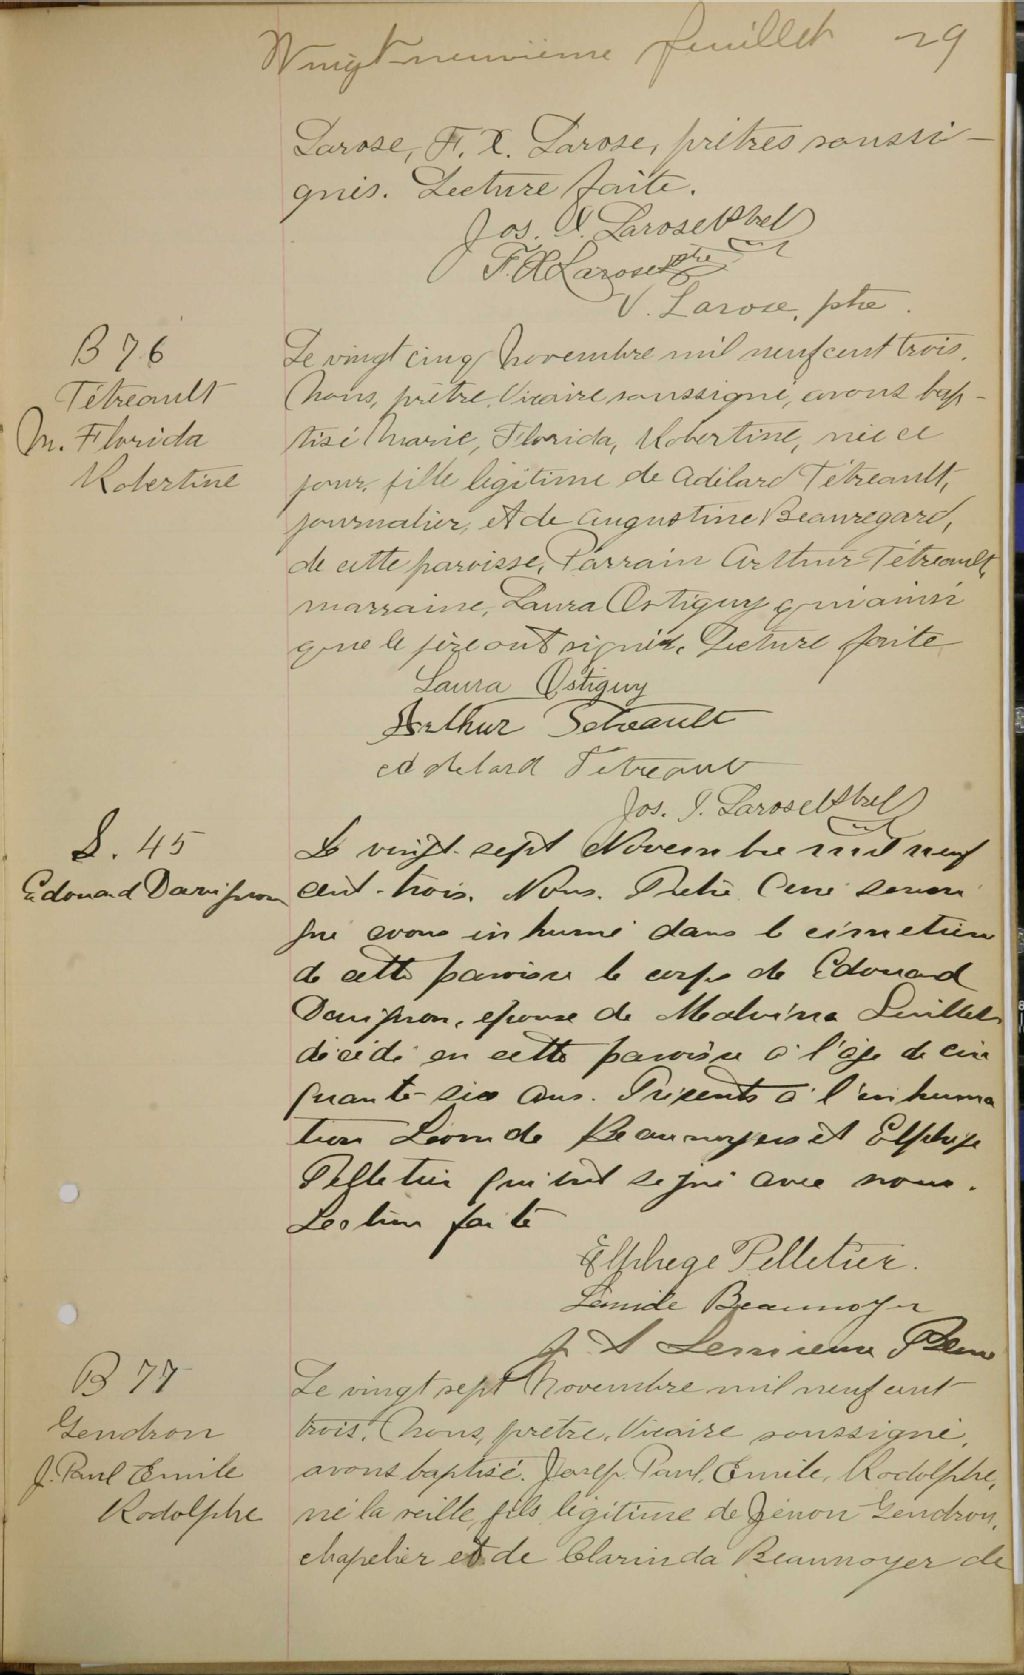 Vingt-neuvième feuillet 29
Larose, F. X. Larose, prêtres soussi-
gnés. Lecture faite.
Jos. Larose
F. X Larose ptre
V. Larose, ptre.
B 76
Tétreault
M. Florida
Robertine
Le vingt cinq Novembre mil neuf cent trois,
Nous, prêtre, Vicaire soussigné, avons bap-
tisé Marie, Florida, Robertine, née ce
jour, fille légitime de Adélard Tétreault,
journalier, et de Augustine Beauregard,
de cette paroisse, Parrain Arthur Tétreault,
marraine, Laura Ostiguy qui ainsi
que le père ont signé. Lecture faite
Laura Ostiguy
Arthur Tetreault
Adelard Tetreault
Jos. Larose
S. 45
Edouard Davignon
Le vingt-sept Novembre mil neuf
cent-trois. Nous. Prêtre Curé soussi
gné avons inhumé dans le cimetière
de cette paroisse le corps de Edouard
Davignon, epoux de Malvina
décédé en cette paroisse à l'âge de cin
quante-six ans. Présents à l'inhuma
tion Léonide Beaunoyer et Elphège
Pelletier qui ont signé avec nous.
Lecture faite
Elphege Pelletier.
Léonide Beaunoyer
J. Lemieux
B 77
Gendron
J. Paul Emile
Rodolphe
Le vingt sept Novembre mil neuf cent
trois, Nous, prêtre, Vicaire soussigné,
avons baptisé. Joseph, Paul, Emile, Rodolphe,
né la veille, fils légitime de Zénon Gendron,
chapelier et de Clarinda Beaunoyer de